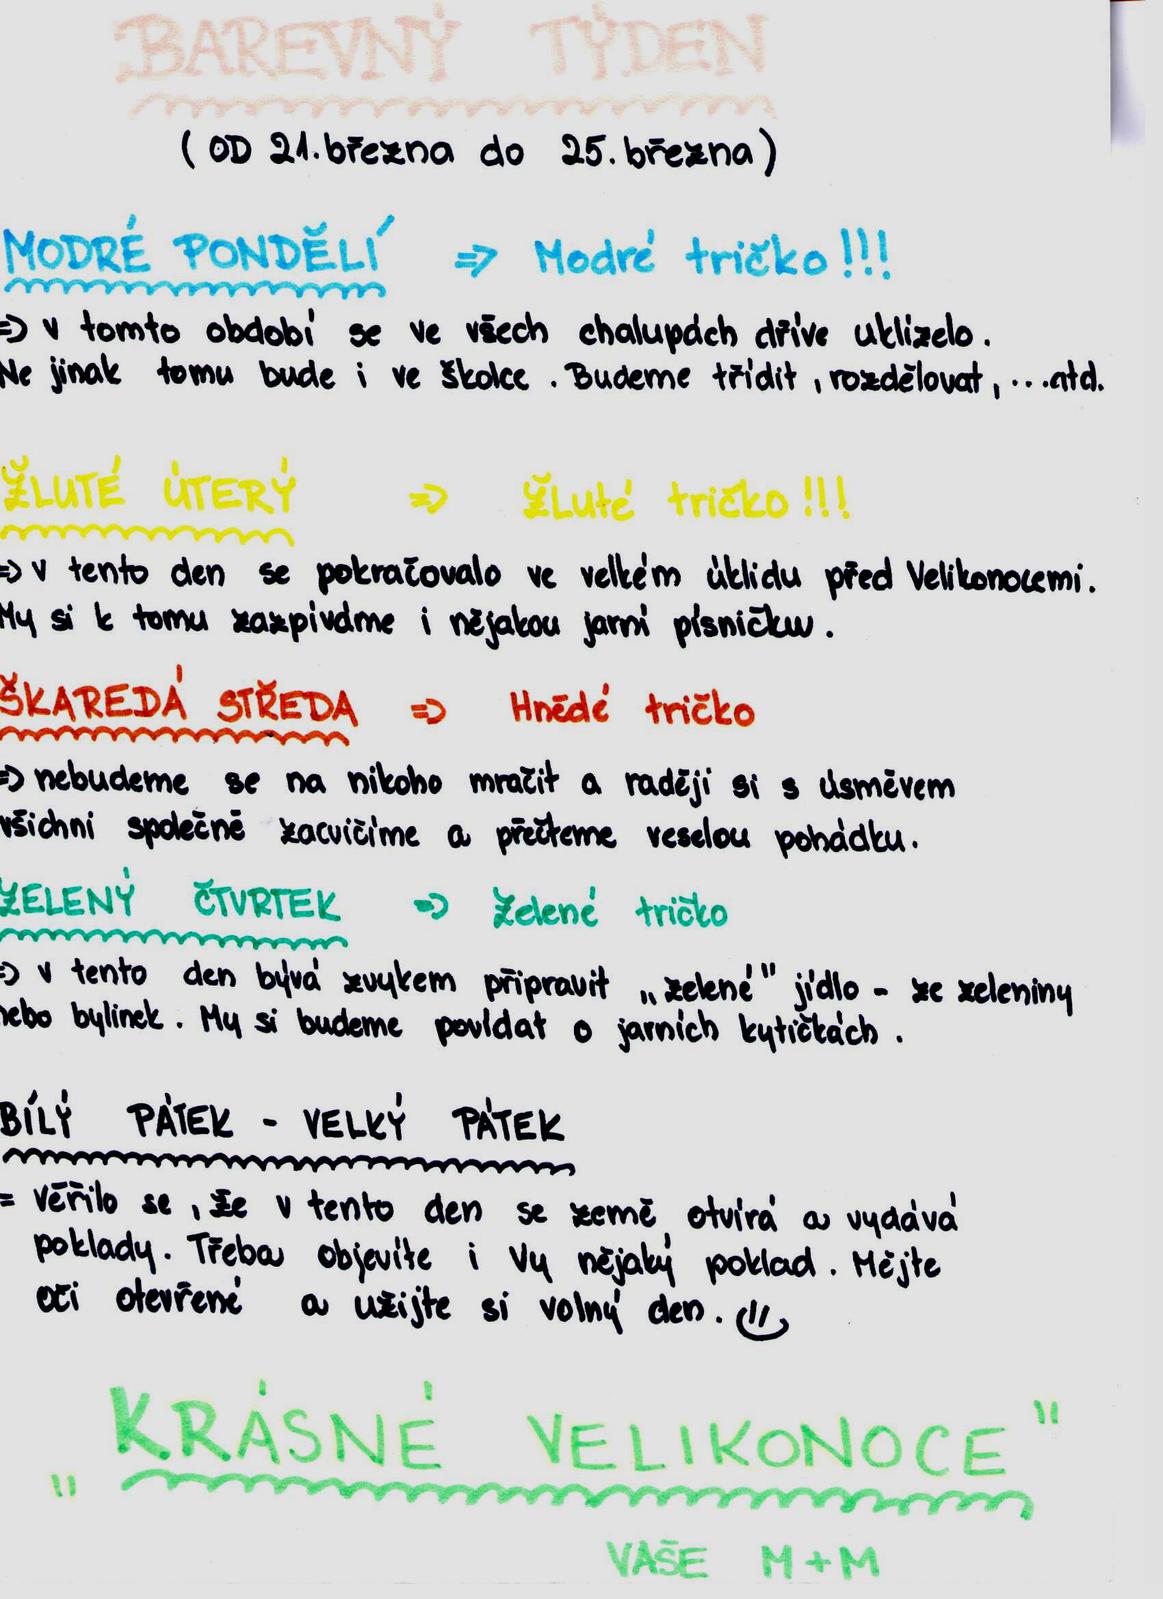 BAREVNÝ TÝDEN
( OD 21. března do 25. března )
MODRÉ PONDĚLÍ => Modré tričko !!!
=> v tomto období se ve všech chalupách dříve uklízelo.
Ne jinak tomu bude i ve školce. Budeme třídit, rozdělovat, ...atd.
ŽLUTÉ ÚTERÝ => Žluté tričko !!!
=> v tento den se pokračovalo ve velkém úklidu před Velikonocemi.
My si k tomu zazpíváme i nějakou jarní písničku.
ŠKAREDÁ STŘEDA => Hnědé tričko
=> nebudeme se na nikoho mračit a raději si s úsměvem
všichni společně zacvičíme a přečteme veselou pohádku.
ZELENÝ ČTVRTEK => Zelené tričko
=> v tento den bývá zvykem připravit „zelené" jídlo - ze zeleniny
nebo bylinek. My si budeme povídat o jarních kytičkách.
BÍLÝ PÁTEK - VELKÝ PÁTEK
= věřilo se, že v tento den se země otvírá a vydává
poklady. Třeba objevíte i Vy nějaký poklad. Mějte
oči otevřené a užijte si volný den.
„KRÁSNÉ VELIKONOCE"
VAŠE M+M